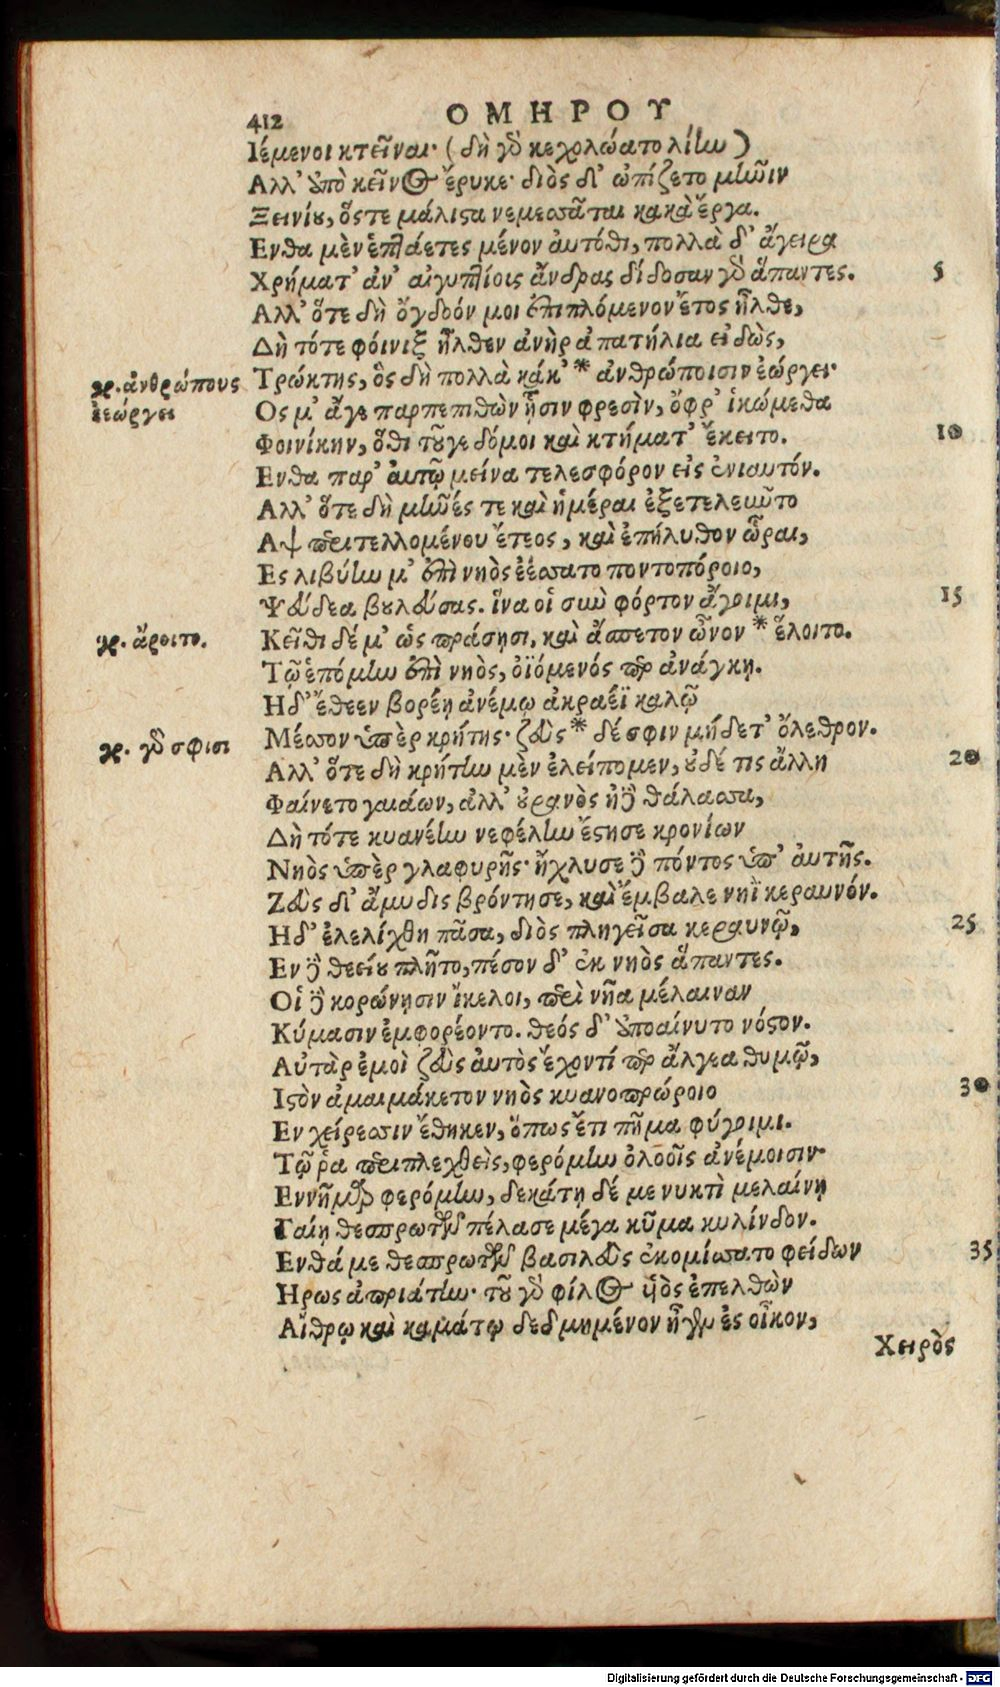 412 ΟΜΗΡΟΥ
Ιέμενοι κτεῖναι· (δὴ γὸ κεχολώατο λίlω)
Αλλ' ἀπὸ κεῖνος ἔρυκε· διὸς δ' ὠπίζετο μlωῖιν
Ξεινίου, ὅςτε μάλιϛα νεμεσσᾶται κακὰ ἔργα.
Ενθα μὲν ἑπτάετες μένον αὐτόθι, πολλὰ δ' ἄγειρα
Χρήματ' ἀν' αἰγυπτίοις ἄνδρας δίδοσαν γὸ ἅπαντες. 5
Αλλ' ὅτε δὴ ὄγδοόν μοι ἐπιπλόμενον ἔτος ἦλθε,
Δὴ τότε φόινιξ ἦλθεν ἀνὴρ ἀπατήλια εἰδὼς,
γρ. ἀνθρώπους Τρώκτης, ὃς δὴ πολλὰ κάκ' * ἀνθρώποισιν ἐώργει·
ἐεώργει Ος μ' ἄγε παρπεπιθὼν ᾗσιν φρεσὶν, ὄφρ' ἱκώμεθα
Φοινίκην, ὅθι τοῦγε δόμοι καὶ κτήματ' ἔκειτο. 10
Ενθα παρ' ἀυτῷ μείνα τελεσφόρον εἰς ἐνιαυτόν.
Αλλ' ὅτε δὴ μῆνές τε καὶ ἡμέραι ἐξετελεῦντο
Αψ περιτελλομένου ἔτεος, καὶ ἐπήλυθον ὧραι,
Ες λιβύην μ' ἐπὶ νηὸς ἐέσσατο ποντοπόροιο,
Ψεύδεα βουλεύσας. ἵνα οἱ σὺν φόρτον ἄγοιμι, 15
γρ. ἄροιτο. Κεῖθι δέ μ' ὡς πράσησι, καὶ ἄσπετον ὦνον * ἕλοιτο.
Τῷ ἑπόμην ἐπὶ νηὸς, ὀϊόμενός περ ἀνάγκη.
Η δ' ἔθεεν βορέῃ ἀνέμῳ ἀκραέϊ καλῷ
γρ. γὸ σφισι Μέσσον ὑπὲρ κρήτης· ζεὺς * δέ σφιν μήδετ' ὄλεθρον.
Αλλ' ὅτε δὴ κρήτην μὲν ἐλείπομεν, οὐδέ τις ἄλλη 20
Φαίνετο γαιάων, ἀλλ' οὐρανὸς ἠδὲ θάλασσα,
Δὴ τότε κυανέην νεφέλην ἔϛησε κρονίων
Νηὸς ὑπὲρ γλαφυρῆς· ἤχλυσε δὲ πόντος ὑπ' ἀυτῆς.
Ζεὺς δ' ἄμυδις βρόντησε, καὶ ἔμβαλε νηῒ κεραυνόν.
Η δ' ἐλελίχθη πᾶσα, διὸς πληγεῖσα κεραυνῷ, 25
Εν δὲ θεείου πλῆτο, πέσον δ' ἐκ νηὸς ἅπαντες.
Οἱ δὲ κορώνῃσιν ἴκελοι, περὶ νῆα μέλαιναν
Κύμασιν ἐμφορέοντο. θεός δ' ἀποαίνυτο νόϛον.
Αὐτὰρ ἐμοὶ ζεὺς ἀυτὸς ἔχοντί περ ἄλγεα θυμῷ,
Ιϛὸν ἀμαιμάκετον νηὸς κυανοπρώροιο 30
Εν χείρεσσιν ἔθηκεν, ὅπως ἔτι πῆμα φύγοιμι.
Τῷ ῥα περιπλεχθεὶς, φερόμην ὀλοοῖς ἀνέμοισιν·
Εννῆμαρ φερόμην, δεκάτη δέ με νυκτὶ μελαίνῃ
Γαίῃ θεσπρωτῶν πέλασε μέγα κῦμα κυλίνδον.
Ενθά με θεσπρωτῶν βασιλεὺς ἐκομίσσατο φείδων 35
Ηρως ἀπριάτην· τοῦ γὸ φίλος υἱὸς ἐπελθὼν
Αἴθρῳ καὶ καμάτῳ δεδμημένον ἦγεν ἐς οἶκον,
Χειρὸς
Digitalisierung gefördert durch die Deutsche Forschungsgemeinschaft - DFG